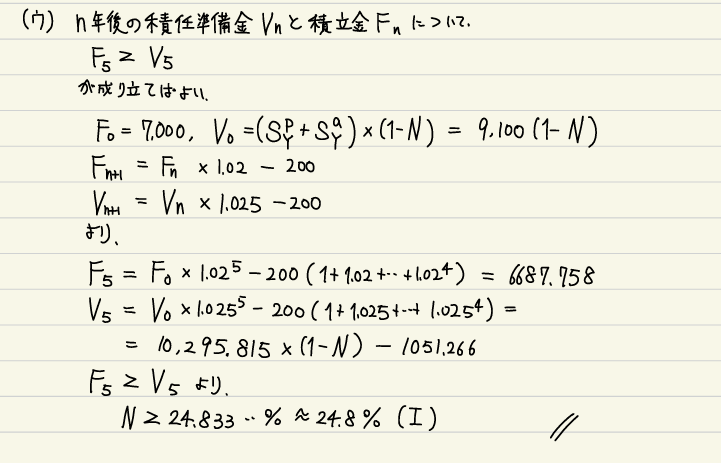 (ウ) n年後の責任準備金 Vn と積立金 Fn について.
F5 ≧ V5
が成り立てばよい.
F0 = 7,000, V0 = (S^p_Y + S^a_Y) × (1-N) = 9,100 (1-N)
Fn+1 = Fn × 1.02 - 200
Vn+1 = Vn × 1.025 - 200
より、
F5 = F0 × 1.02^5 - 200 (1+1.02+‥+1.02^4) = 6687.758
V5 = V0 × 1.025^5 - 200 (1+1.025+‥+1.025^4) =
= 10,295.815 × (1-N) - 1051.266
F5 ≧ V5 より、
N ≧ 24.833‥% ≈ 24.8% (I) //